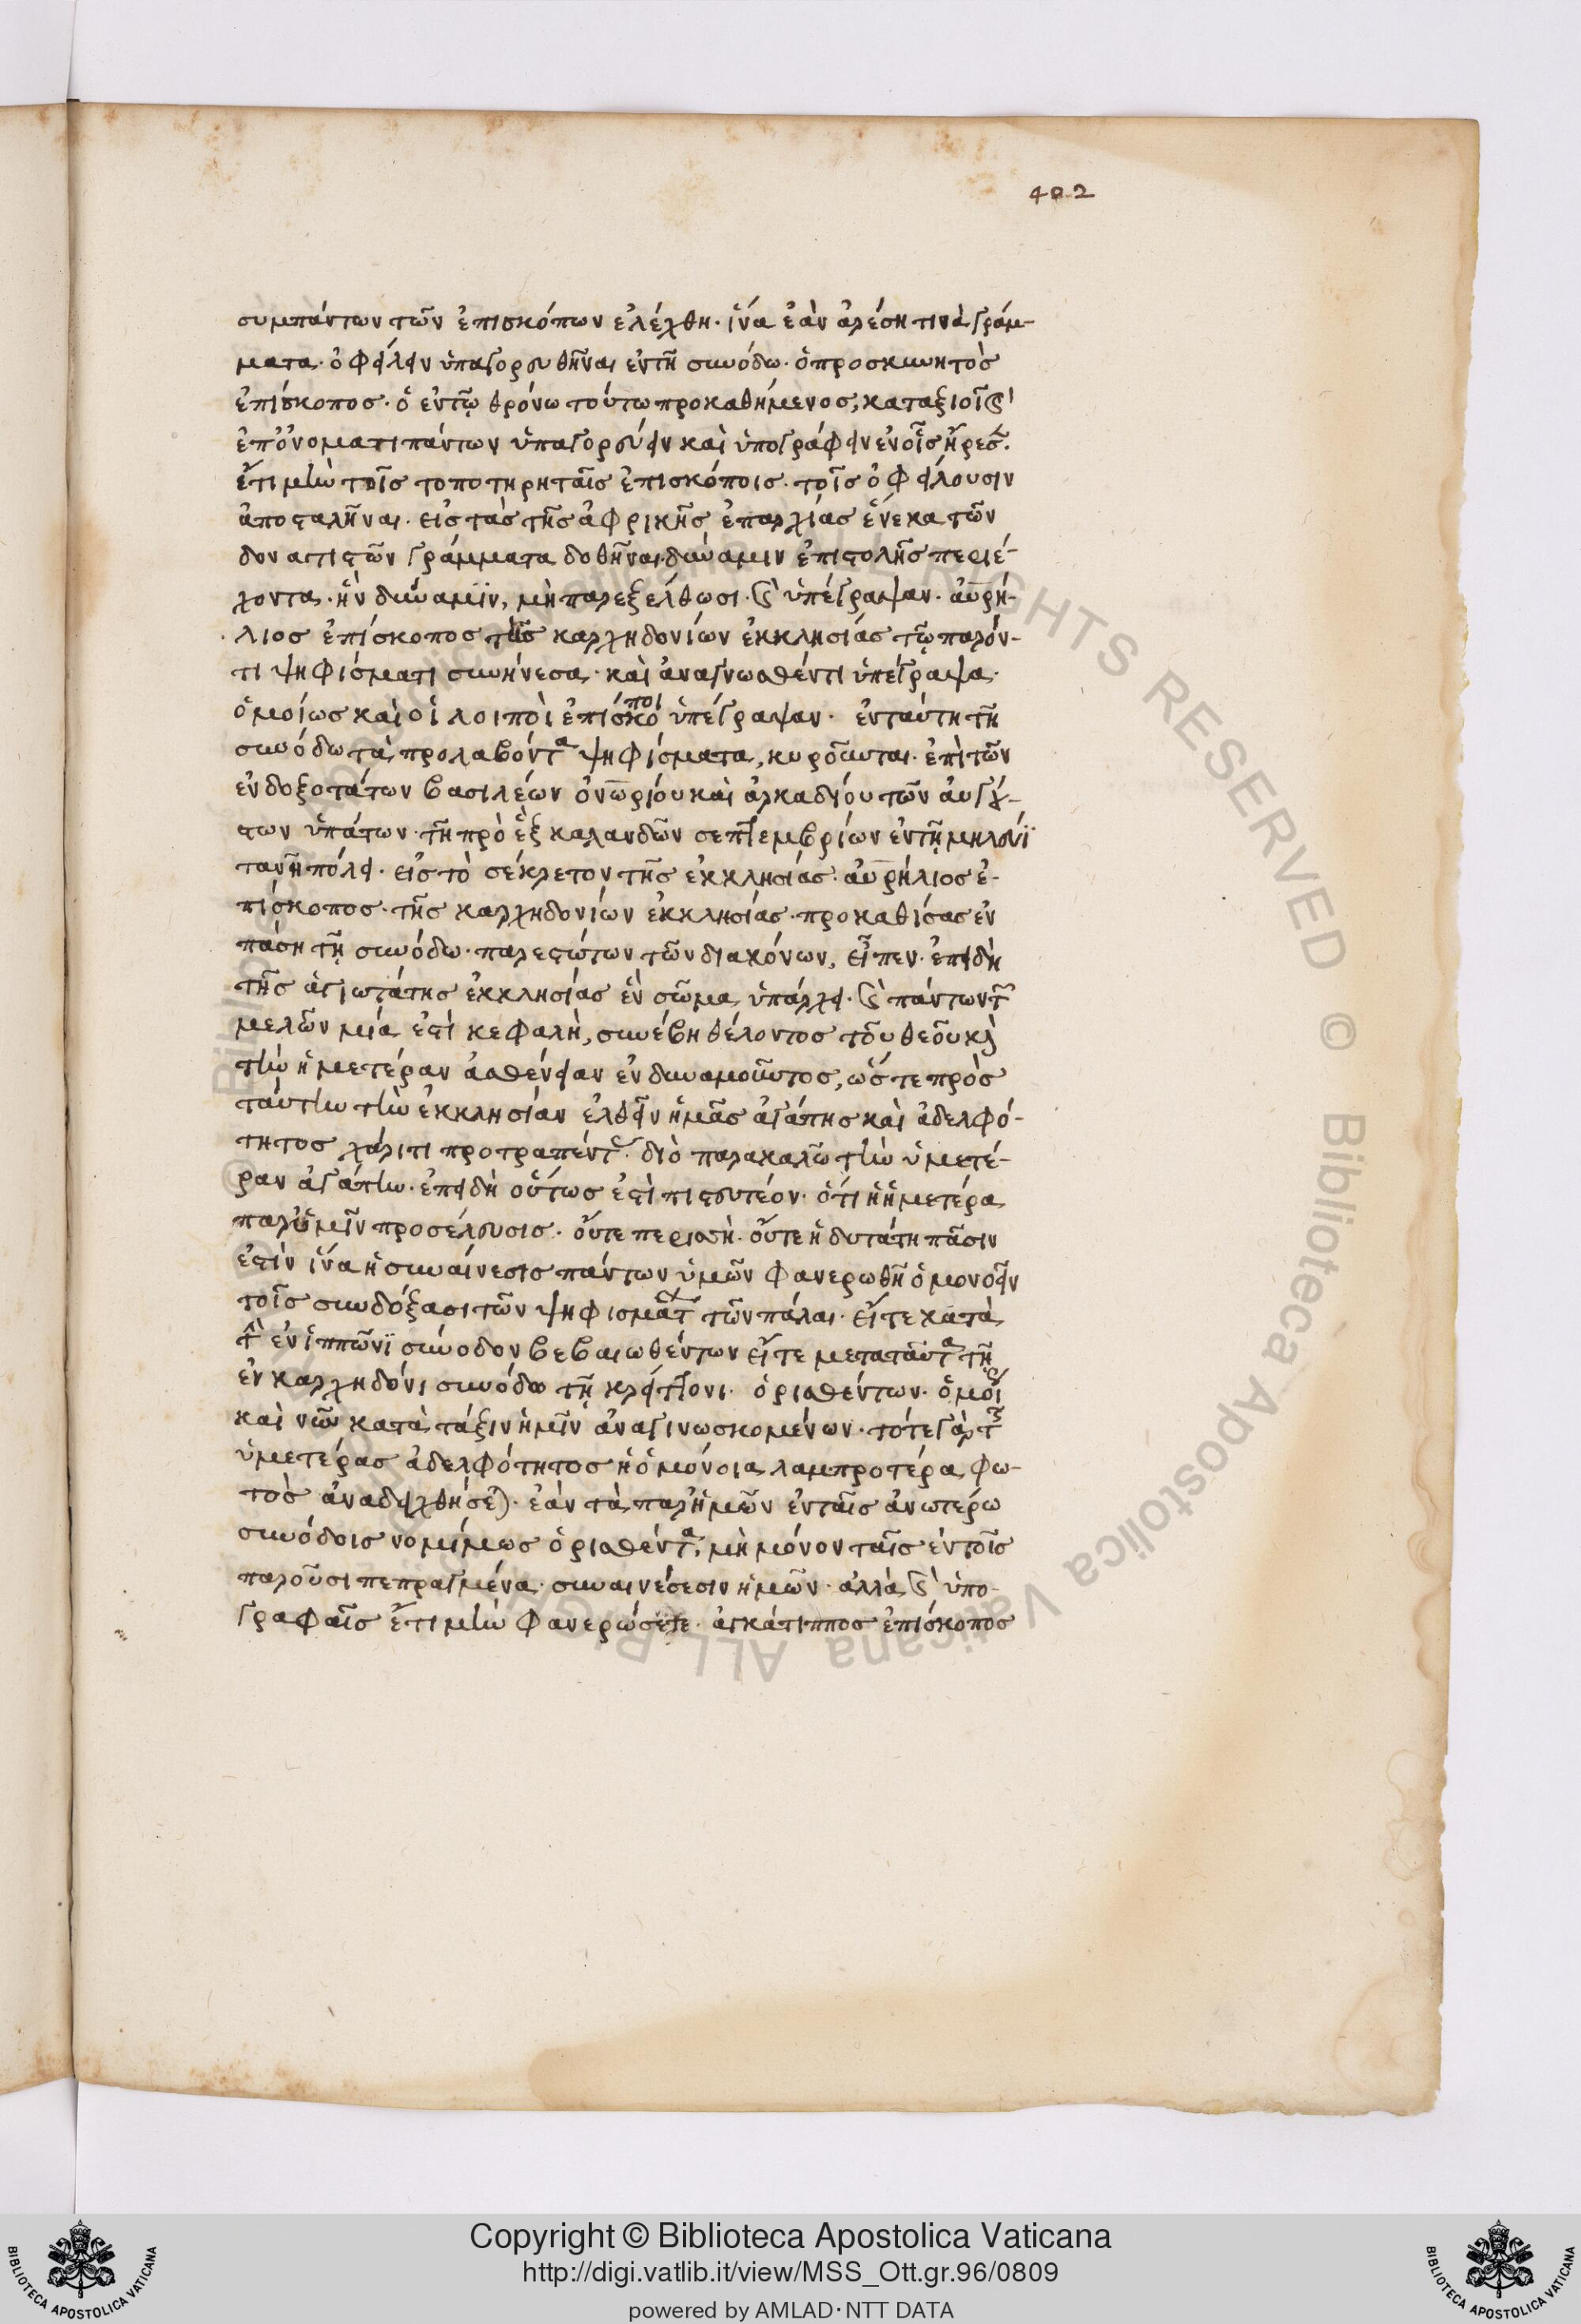 402
συμπάντων τῶν ἐπισκόπων ἐλέχθη· ἵνα ἐὰν ἀρέση τινὰ γράμ-
ματα· ὀφείλειν ὑπαγορευθῆναι ἐν τῆ συνόδω· ὁ προσκυνητὸς
ἐπίσκοπος· ὁ ἐν τῶ θρόνω τούτω προκαθήμενος, καταξιοῖ καὶ
ἐπ' ὀνόματι πάντων ὑπαγορεύειν καὶ ὑπογράφειν ἐν οἷς ἤρεσ.
ἔτι μὴν τοῖς τοποτηρηταῖς ἐπισκόποις· τοῖς ὀφείλουσιν
ἀποσταλῆναι· εἰς τὰς τῆς ἀφρικῆς ἐπαρχίας ἕνεκα τῶν
δονατιστῶν γράμματα δοθῆναι δύναμιν ἐπιστολῆς περιέ-
χοντα· ἣν δύναμιν, μὴ παρεξέλθωσι· καὶ ὑπέγραψαν· αὐρή-
λιος ἐπίσκοπος τῆς καρχηδονίων ἐκκλησίας τῶ παρόν-
τι ψηφίσματι συνήνεσα· καὶ ἀναγνωσθέντι ὑπέγραψα·
ὁμοίως καὶ οἱ λοιποὶ ἐπίσκοποι ὑπέγραψαν· ἐν ταύτη τῆ
συνόδω τὰ προλαβόντα ψηφίσματα, κυροῦνται· ἐπὶ τῶν
ἐνδοξοτάτων βασιλέων ὀνωρίου καὶ ἀρκαδίου τῶν αὐγού-
στων ὑπάτων· τῆ πρὸ ἓξ καλανδῶν σεπτεμβρίων ἐν τῆ μηλευϊ
τανῆ πόλει· εἰς τὸ σέκρετον τῆς ἐκκλησίας· αὐρήλιος ἐ-
πίσκοπος· τῆς καρχηδονίων ἐκκλησίας· προκαθίσας ἐν
πάση τῆ συνόδω· παρεστώτων τῶν διακόνων, εἶπεν· ἐπειδὴ
τῆς ἁγιωτάτης ἐκκλησίας ἓν σῶμα ὑπάρχει· καὶ πάντων τῶν
μελῶν μία ἐστὶ κεφαλὴ, συνέβη θέλοντος τοῦ θεοῦ καὶ
τὴν ἡμετέραν ἀσθένειαν ἐνδυναμοῦντος, ὥστε πρὸς
ταύτην τὴν ἐκκλησίαν ἐλθεῖν ἡμᾶς ἀγάπης καὶ ἀδελφό-
τητος χάριτι προτραπέντας· διὸ παρακαλῶ τὴν ὑμετέ-
ραν ἀγάπην· ἐπειδὴ οὕτως ἐστὶ πιστευτέον· ὅτι ἡ ἡμετέρα
παρ' ὑμῖν προσέλευσις· οὔτε περισσὴ· οὔτε ἡδυτάτη πᾶσιν
ἐστὶν ἵνα ἡ συναίνεσις πάντων ὑμῶν φανερωθῆ ὁμονοεῖν
τοῖς συνδόξασι τῶν ψηφισμάτων τῶν πάλαι· εἴτε κατὰ
τὴν ἐν ἱππῶνϊ σύνοδον βεβαιωθέντων εἴτε μετὰ ταῦτα τῆ
ἐν καρχηδόνι συνόδω τῆ κρείττονι· ὁρισθέντων· ὁμοίως
καὶ νῦν κατὰ τάξιν ἡμῖν ἀναγινωσκομένων· τότε γὰρ τῆς
ὑμετέρας ἀδελφότητος ἡ ὁμόνοια λαμπροτέρα φω-
τὸς ἀναδειχθήσεται· ἐὰν τὰ παρ' ἡμῶν ἐν ταῖς ἀνωτέρω
συνόδοις νομίμως ὁρισθέντα, μὴ μόνον ταῖς ἐν τοῖς
παροῦσι πεπραγμένα· συναινέσεσιν ἡμῶν· ἀλλὰ καὶ ὑπο-
γραφαῖς ἔτι μὴν φανερώσετε· ἀγκάτιππος ἐπίσκοπος
© Biblioteca Apostolica Vaticana ALL RIGHTS RESERVED © Biblioteca Apostolica Vaticana ALL RIGHTS RESERVED
Copyright © Biblioteca Apostolica Vaticana
http://digi.vatlib.it/view/MSS_Ott.gr.96/0809
powered by AMLAD·NTT DATA
BIBLIOTECA APOSTOLICA VATICANA
BIBLIOTECA APOSTOLICA VATICANA